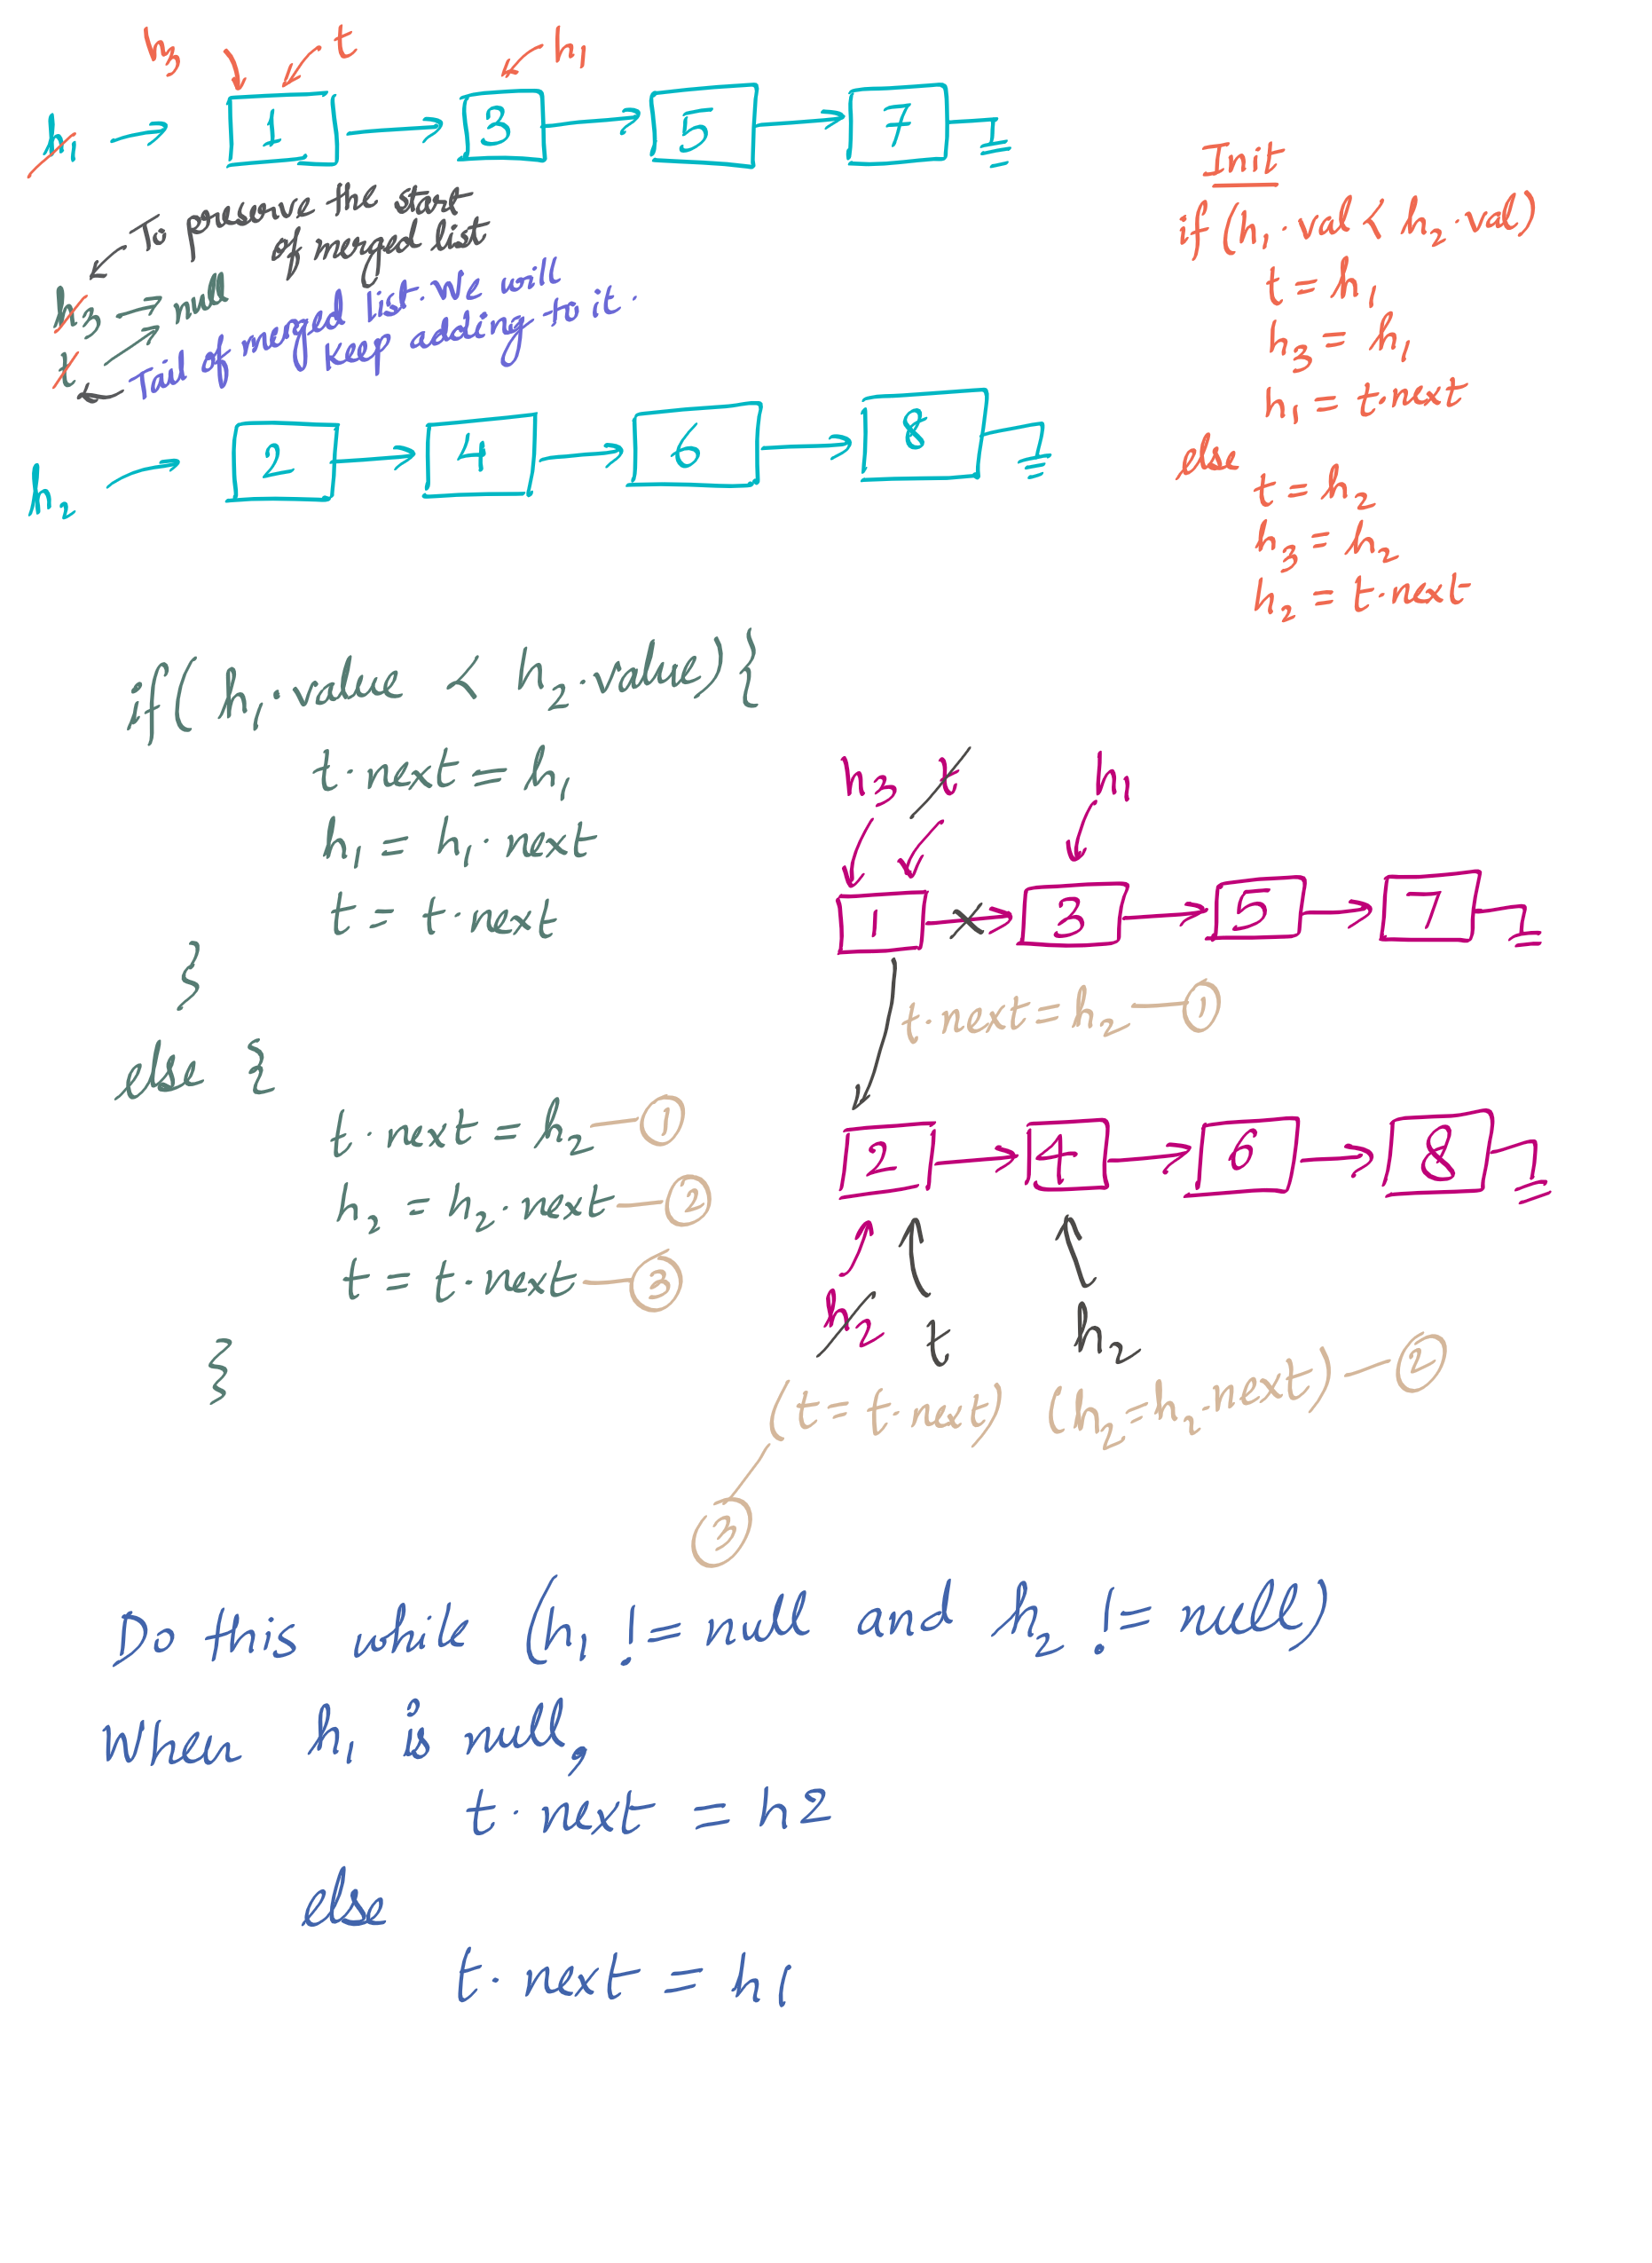 h3 t h1
h1 → 1 → 3 → 5 → 7
To preserve the start
of merged list
h3 → null
t
Tail of merged list. We will
keep adding to it.
h2 → 2 → 4 → 6 → 8
Init
if (h1.val < h2.val)
t = h1
h3 = h1
h1 = t.next
else
t = h2
h3 = h2
h2 = t.next
if( h1.value < h2.value){
t.next = h1
h1 = h1.next
t = t.next
}
else {
t.next = h2 — 1
h2 = h2.next — 2
t = t.next — 3
}
h3 t h1
1 → 3 → 5 → 7
t.next = h2 — 1
2 → 4 → 6 → 8
h2 t h2
(t = t.next) (h2 = h2.next) — 2
3
Do this while (h1 != null and h2 != null)
When h1 is null,
t.next = h2
else
t.next = h1